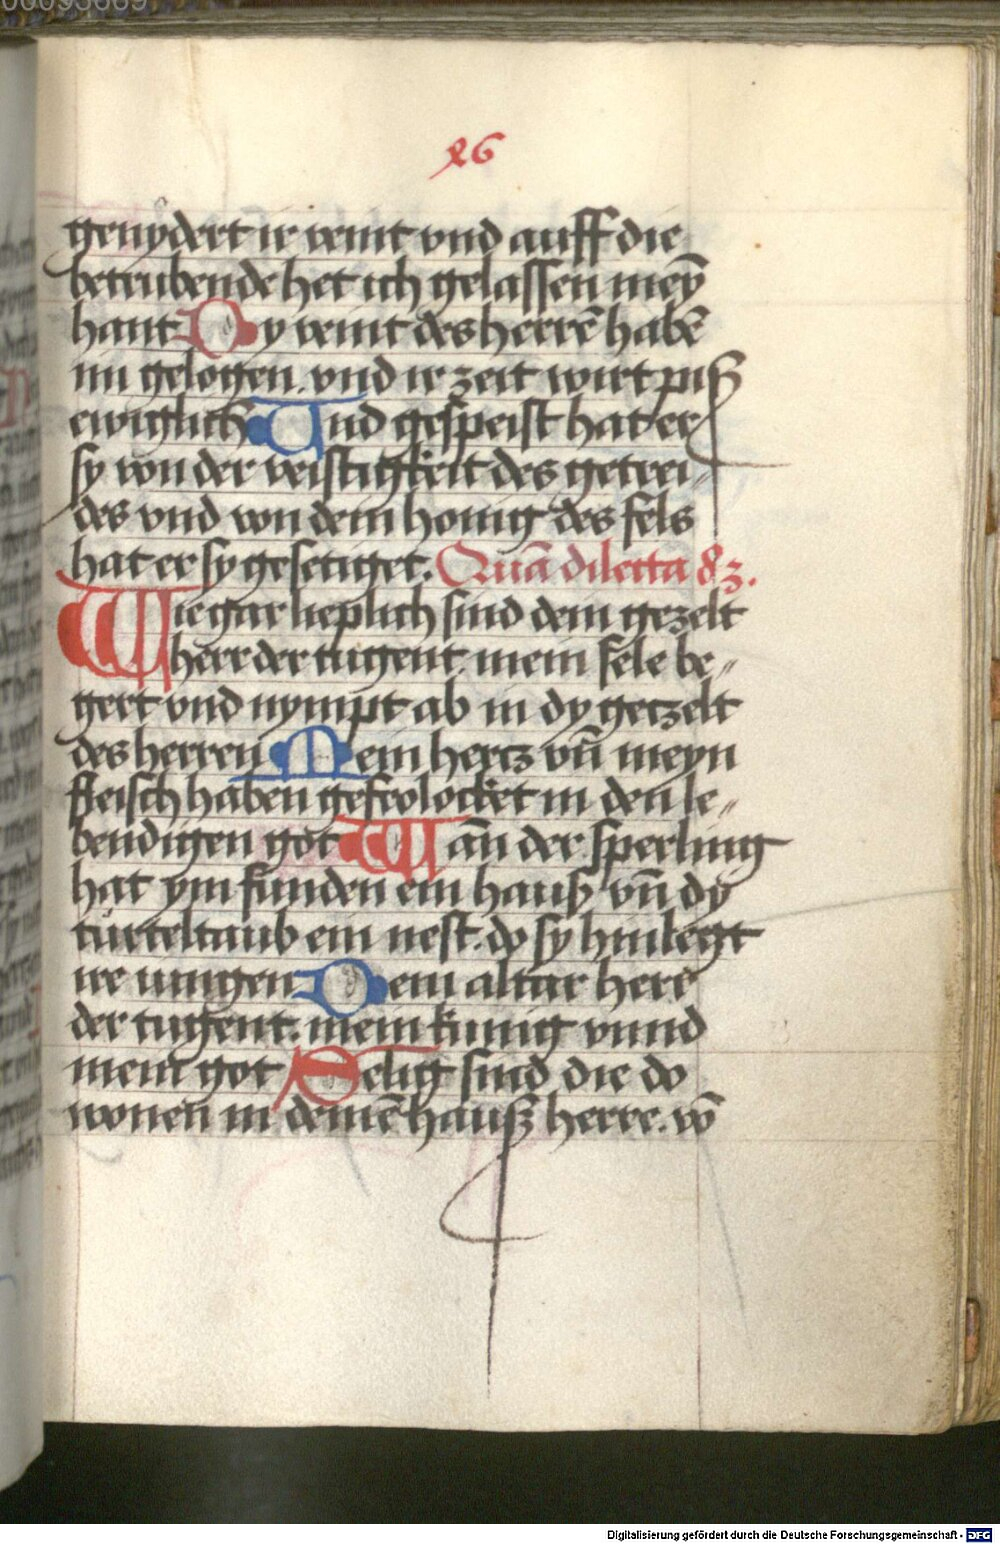 00093669
26
genydert ir veint vnd auff die
betrubende het ich gelassen meȳ
hant Dy veint des herrē habē
im gelogen. vnd ir zeit wirt piß
ewiglich Und gespeist hat er
sy von der veistigkeit des getrei-
des vnd von dem honig des fels
hat er sy gesetiget. Quā dilecta &z.
Wie gar lieplich sind dein gezelt
herr der tugent. mein sele be-
gert vnd nympt ab in dy getzelt
des herren Mein hertz vn̄ meyn
fleisch haben gefrolocket in den le-
bendigen got Wān der sperling
hat ym funden ein hauß vn̄ dy
turteltaub ein nest. do sy hinlegt
ire iungen Dein altar herr
der tugent. mein kunig vnnd
mein got Selig sind die do
wonen in deinē hauß herre. in̄
Digitalisierung gefördert durch die Deutsche Forschungsgemeinschaft - DFG